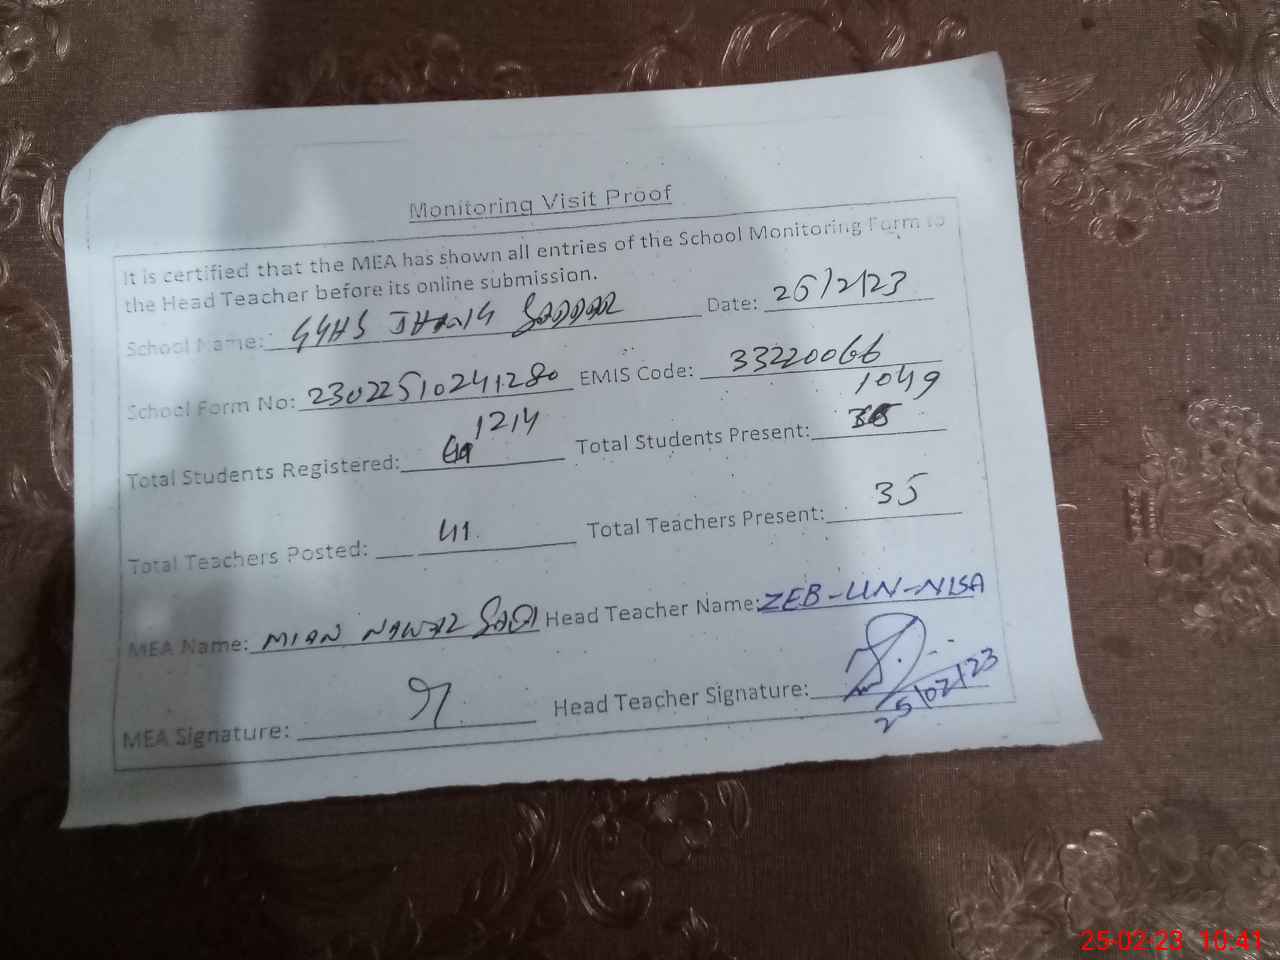 Monitoring Visit Proof
It is certified that the MEA has shown all entries of the School Monitoring Form to
the Head Teacher before its online submission.
School Name: GGHS JHANG SADDAR Date: 25/2/23
School Form No: 23022510241280 EMIS Code: 33220066
Total Students Registered: 1214 Total Students Present: 1049
Total Teachers Posted: 41 Total Teachers Present: 35
MEA Name: MIAN NAWAZ Head Teacher Name: ZEB-UN-NISA
MEA Signature: Head Teacher Signature:
25/02/23
25-02-23 10:41